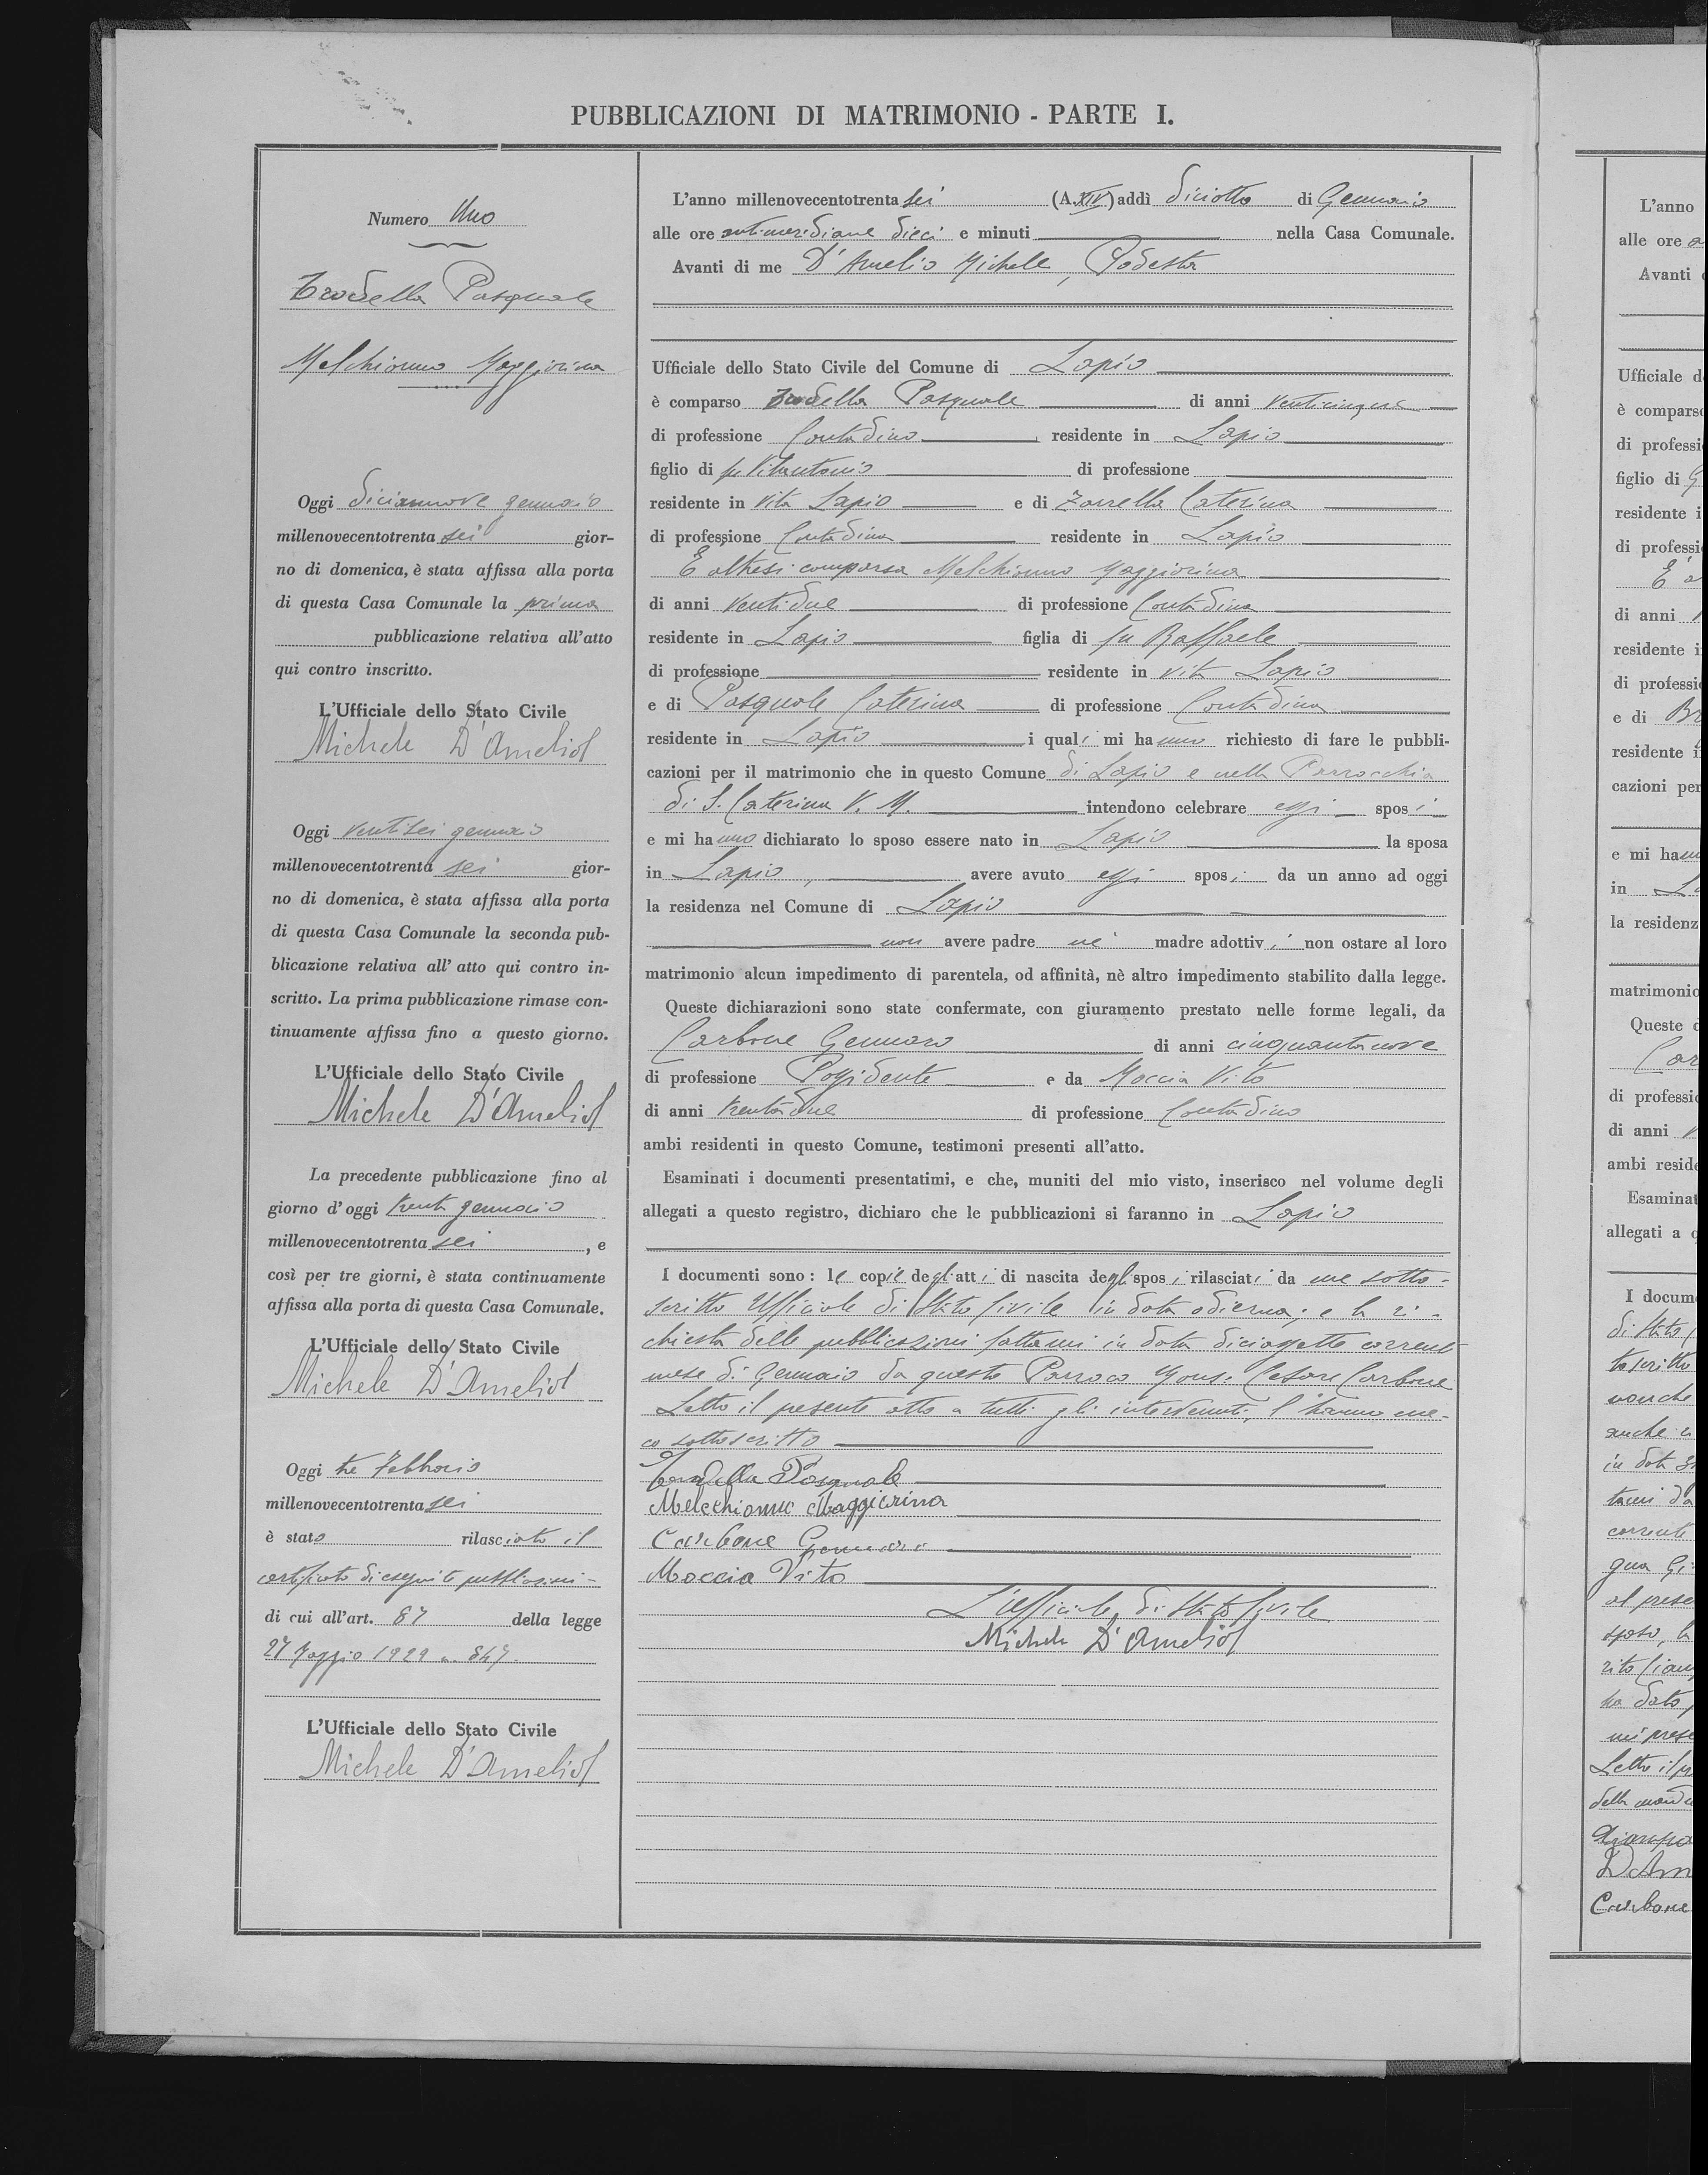 PUBBLICAZIONI DI MATRIMONIO - PARTE I.
Numero Uno
Trodella Pasquale
Melchionno Maggiorina
Oggi diciannove gennaio
millenovecentotrenta sei gior-
no di domenica, è stata affissa alla porta
di questa Casa Comunale la prima
pubblicazione relativa all'atto
qui contro inscritto.
L'Ufficiale dello Stato Civile
Michele D'Amelio
Oggi ventisei gennaio
millenovecentotrenta sei gior-
no di domenica, è stata affissa alla porta
di questa Casa Comunale la seconda pub-
blicazione relativa all' atto qui contro in-
scritto. La prima pubblicazione rimase con-
tinuamente affissa fino a questo giorno.
L'Ufficiale dello Stato Civile
Michele D'Amelio
La precedente pubblicazione fino al
giorno d'oggi trenta gennaio
millenovecentotrenta sei , e
così per tre giorni, è stata continuamente
affissa alla porta di questa Casa Comunale.
L'Ufficiale dello Stato Civile
Michele D'Amelio
Oggi tre Febbraio
millenovecentotrenta sei
è stato rilasciato il
certificato di eseguite pubblicazioni -
di cui all'art. 87 della legge
27 Maggio 1929 n. 847
L'Ufficiale dello Stato Civile
Michele D'Amelio
L'anno millenovecentotrenta sei (A.XIV) addì diciotto di Gennaio
alle ore antimeridiane dieci e minuti nella Casa Comunale.
Avanti di me D'Amelio Michele, Podestà
Ufficiale dello Stato Civile del Comune di Lapio
è comparso Trodella Pasquale di anni venticinque
di professione Contadino residente in Lapio
figlio di fu Vitantonio di professione
residente in vita Lapio e di Zarrella Caterina
di professione Contadina residente in Lapio
È altresì comparsa Melchionno Maggiorina
di anni ventidue di professione Contadina
residente in Lapio figlia di fu Raffaele
di professione residente in vita Lapio
e di Pasquale Caterina di professione Contadina
residente in Lapio i quali mi hanno richiesto di fare le pubbli-
cazioni per il matrimonio che in questo Comune di Lapio e nella Parrocchia
di S. Caterina V. M. intendono celebrare essi sposi
e mi hanno dichiarato lo sposo essere nato in Lapio la sposa
in Lapio, avere avuto essi sposi da un anno ad oggi
la residenza nel Comune di Lapio
non avere padre nè madre adottivi non ostare al loro
matrimonio alcun impedimento di parentela, od affinità, nè altro impedimento stabilito dalla legge.
Queste dichiarazioni sono state confermate, con giuramento prestato nelle forme legali, da
Carbone Gennaro di anni cinquantanove
di professione Possidente e da Moccia Vito
di anni trentadue di professione Contadino
ambi residenti in questo Comune, testimoni presenti all'atto.
Esaminati i documenti presentatimi, e che, muniti del mio visto, inserisco nel volume degli
allegati a questo registro, dichiaro che le pubblicazioni si faranno in Lapio
I documenti sono: le copie degli atti di nascita degli sposi rilasciati da me sotto-
scritto Ufficiale di Stato Civile in data odierna; e la ri-
chiesta delle pubblicazioni fattami in data diciassette corrente
mese di Gennaio da questo Parroco Mons. Cesare Carbone
Letto il presente atto a tutti gli intervenuti, l'hanno me-
co sottoscritto
Trodella Pasquale
Melchionno Maggiorina
Carbone Gennaro
Moccia Vito
L'Ufficiale di Stato Civile
Michele D'Amelio
L'anno
alle ore
Avanti
Ufficiale
è comparso
di professi
figlio di
residente i
di professi
di anni
residente i
di professi
e di
residente i
cazioni per
e mi ha
in
la residenz
matrimonio
Queste
di professi
di anni
ambi reside
Esaminat
allegati a
I docum
Carbone